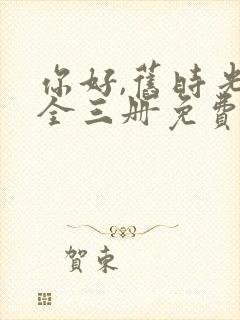 你好,舊時光
全三册免費
賀東